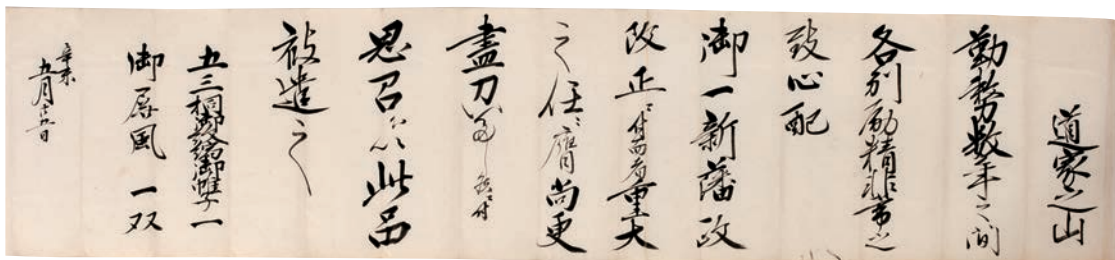 道家之山
勤務数年之間
各別励精非常之
致心配
御一新藩政
改正ニ付而者重大
之任ニ膺尚更
盡力いたし候ニ付
思召を以此品
被遣之
五三桐御紋御帷子一
御屏風一双
辛未
五月廿五日